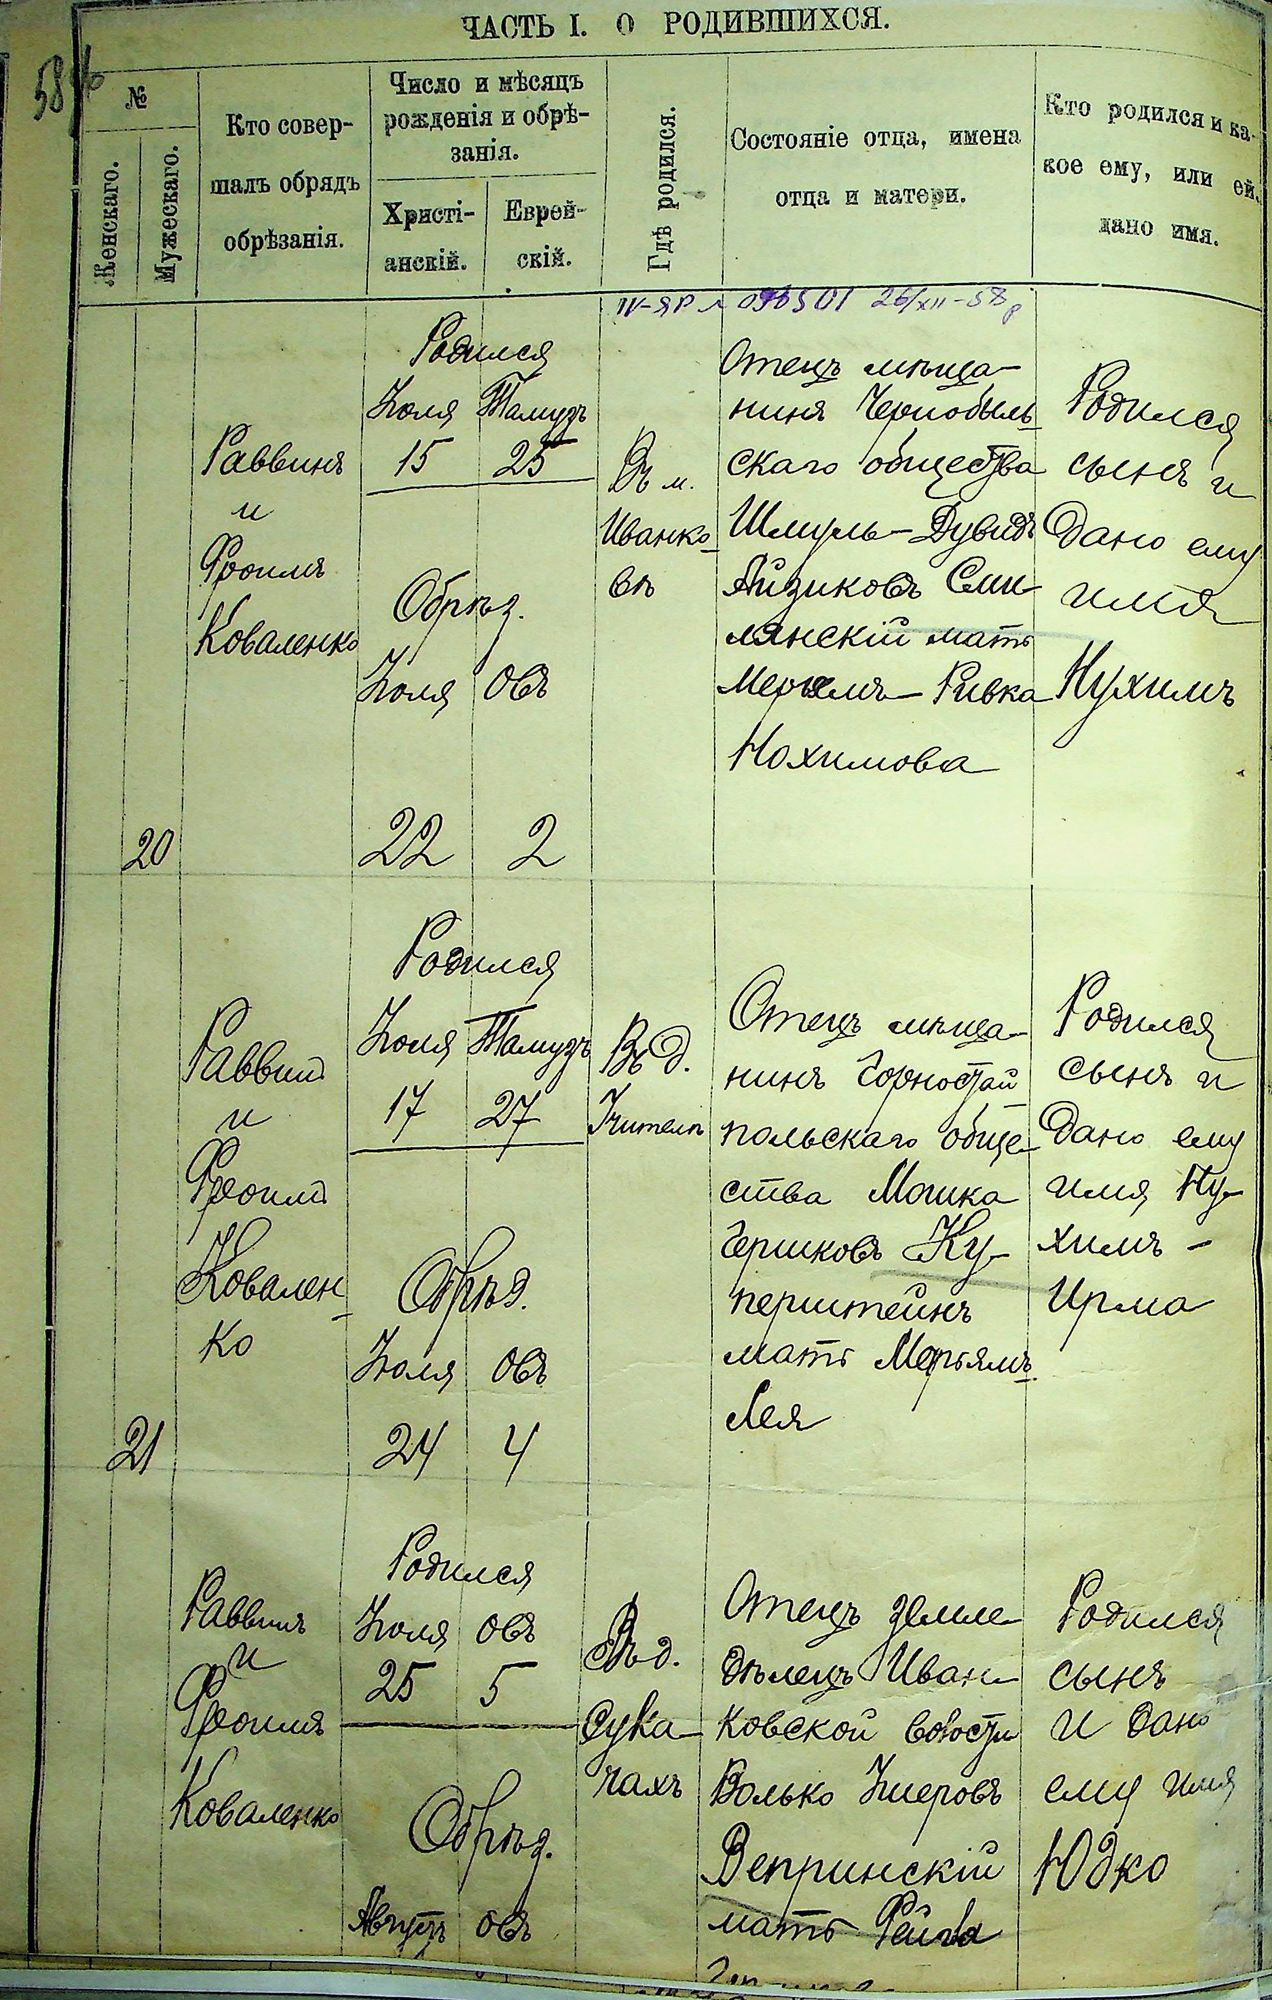 ЧАСТЬ I. О РОДИВШИХСЯ.
58
№
Женскаго.
Мужескаго.
Кто совер-
шалъ обрядъ
обрѣзанія.
Число и мѣсяцъ
рожденія и обрѣ-
занія.
Христі-
анскій.
Еврей-
скій.
Гдѣ родился.
Состояніе отца, имена
отца и матери.
Кто родился и ка-
кое ему, или ей,
дано имя.
26/XII-58
20
Раввинъ
и
Фроимъ
Коваленко
Родился
Іюля Тамузъ
15 25
Обрѣз.
Іюля Овъ
22 2
Въ м.
Иванко-
вѣ
Отецъ мѣща-
нинъ Чернобыль-
скаго общества
Шмуль-Дувидъ
Айзиковъ Сми
лянскій мать
Мерьямъ-Ривка
Нохимова
Родился
сынъ и
дано ему
имя
Нухимъ
21
Раввинъ
и
Фроимъ
Ковален-
ко
Родился
Іюля Тамузъ
17 27
Обрѣз.
Іюля Овъ
24 4
Въ д.
Отецъ мѣща-
нинъ Горностай
польскаго обще-
ства Мошка
Гершковъ Ку-
перштейнъ
мать Мерьямъ-
Лея
Родился
сынъ и
дано ему
имя Ну-
химъ-
Ирма
Раввинъ
и
Фроимъ
Коваленко
Родился
Іюля Овъ
25 5
Обрѣз.
Августъ Овъ
Въ д.
Сука-
чахъ
Отецъ земле-
дѣлецъ Иван-
ковской волости
Волько
Вепринскій
мать Фейга
Родился
сынъ
и дано
ему имя
Юдко